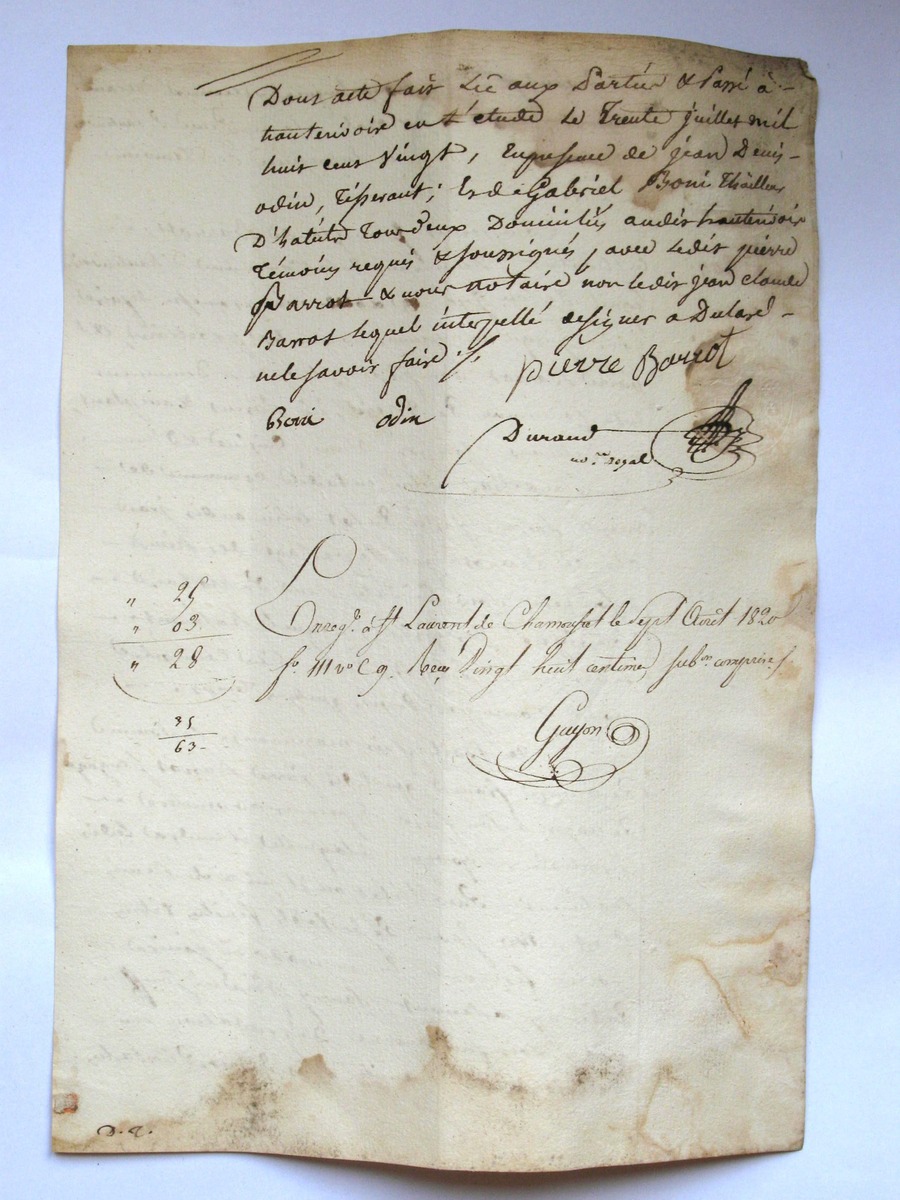 Dont acte fait Lu aux Parties & Passé à
hauterivoire en L'étude Le Trente juillet mil
huit cent Vingt, En presence de jean Denis
odin, Tisserant; Et de Gabriel Boni Thailleur
D'habits Tous Deux Domiciliés audit hauterivoire
Témoins requis & soussignés, avec Ledit pierre
Barrot & nous notaire non Ledit jean claude
Barrot Lequel interpellé de signer a Declaré
ne le savoir faire
pierre Barrot
Boni odin
Durand
no.re royal
" 25
" 03
" 28
35
63-
Enreg.é à St Laurent de Chamousset le Sept Août 1820
f.o 111 v.o C 9. Reçu Vingt huit centimes sub.on comprise
Guyon
D. D.